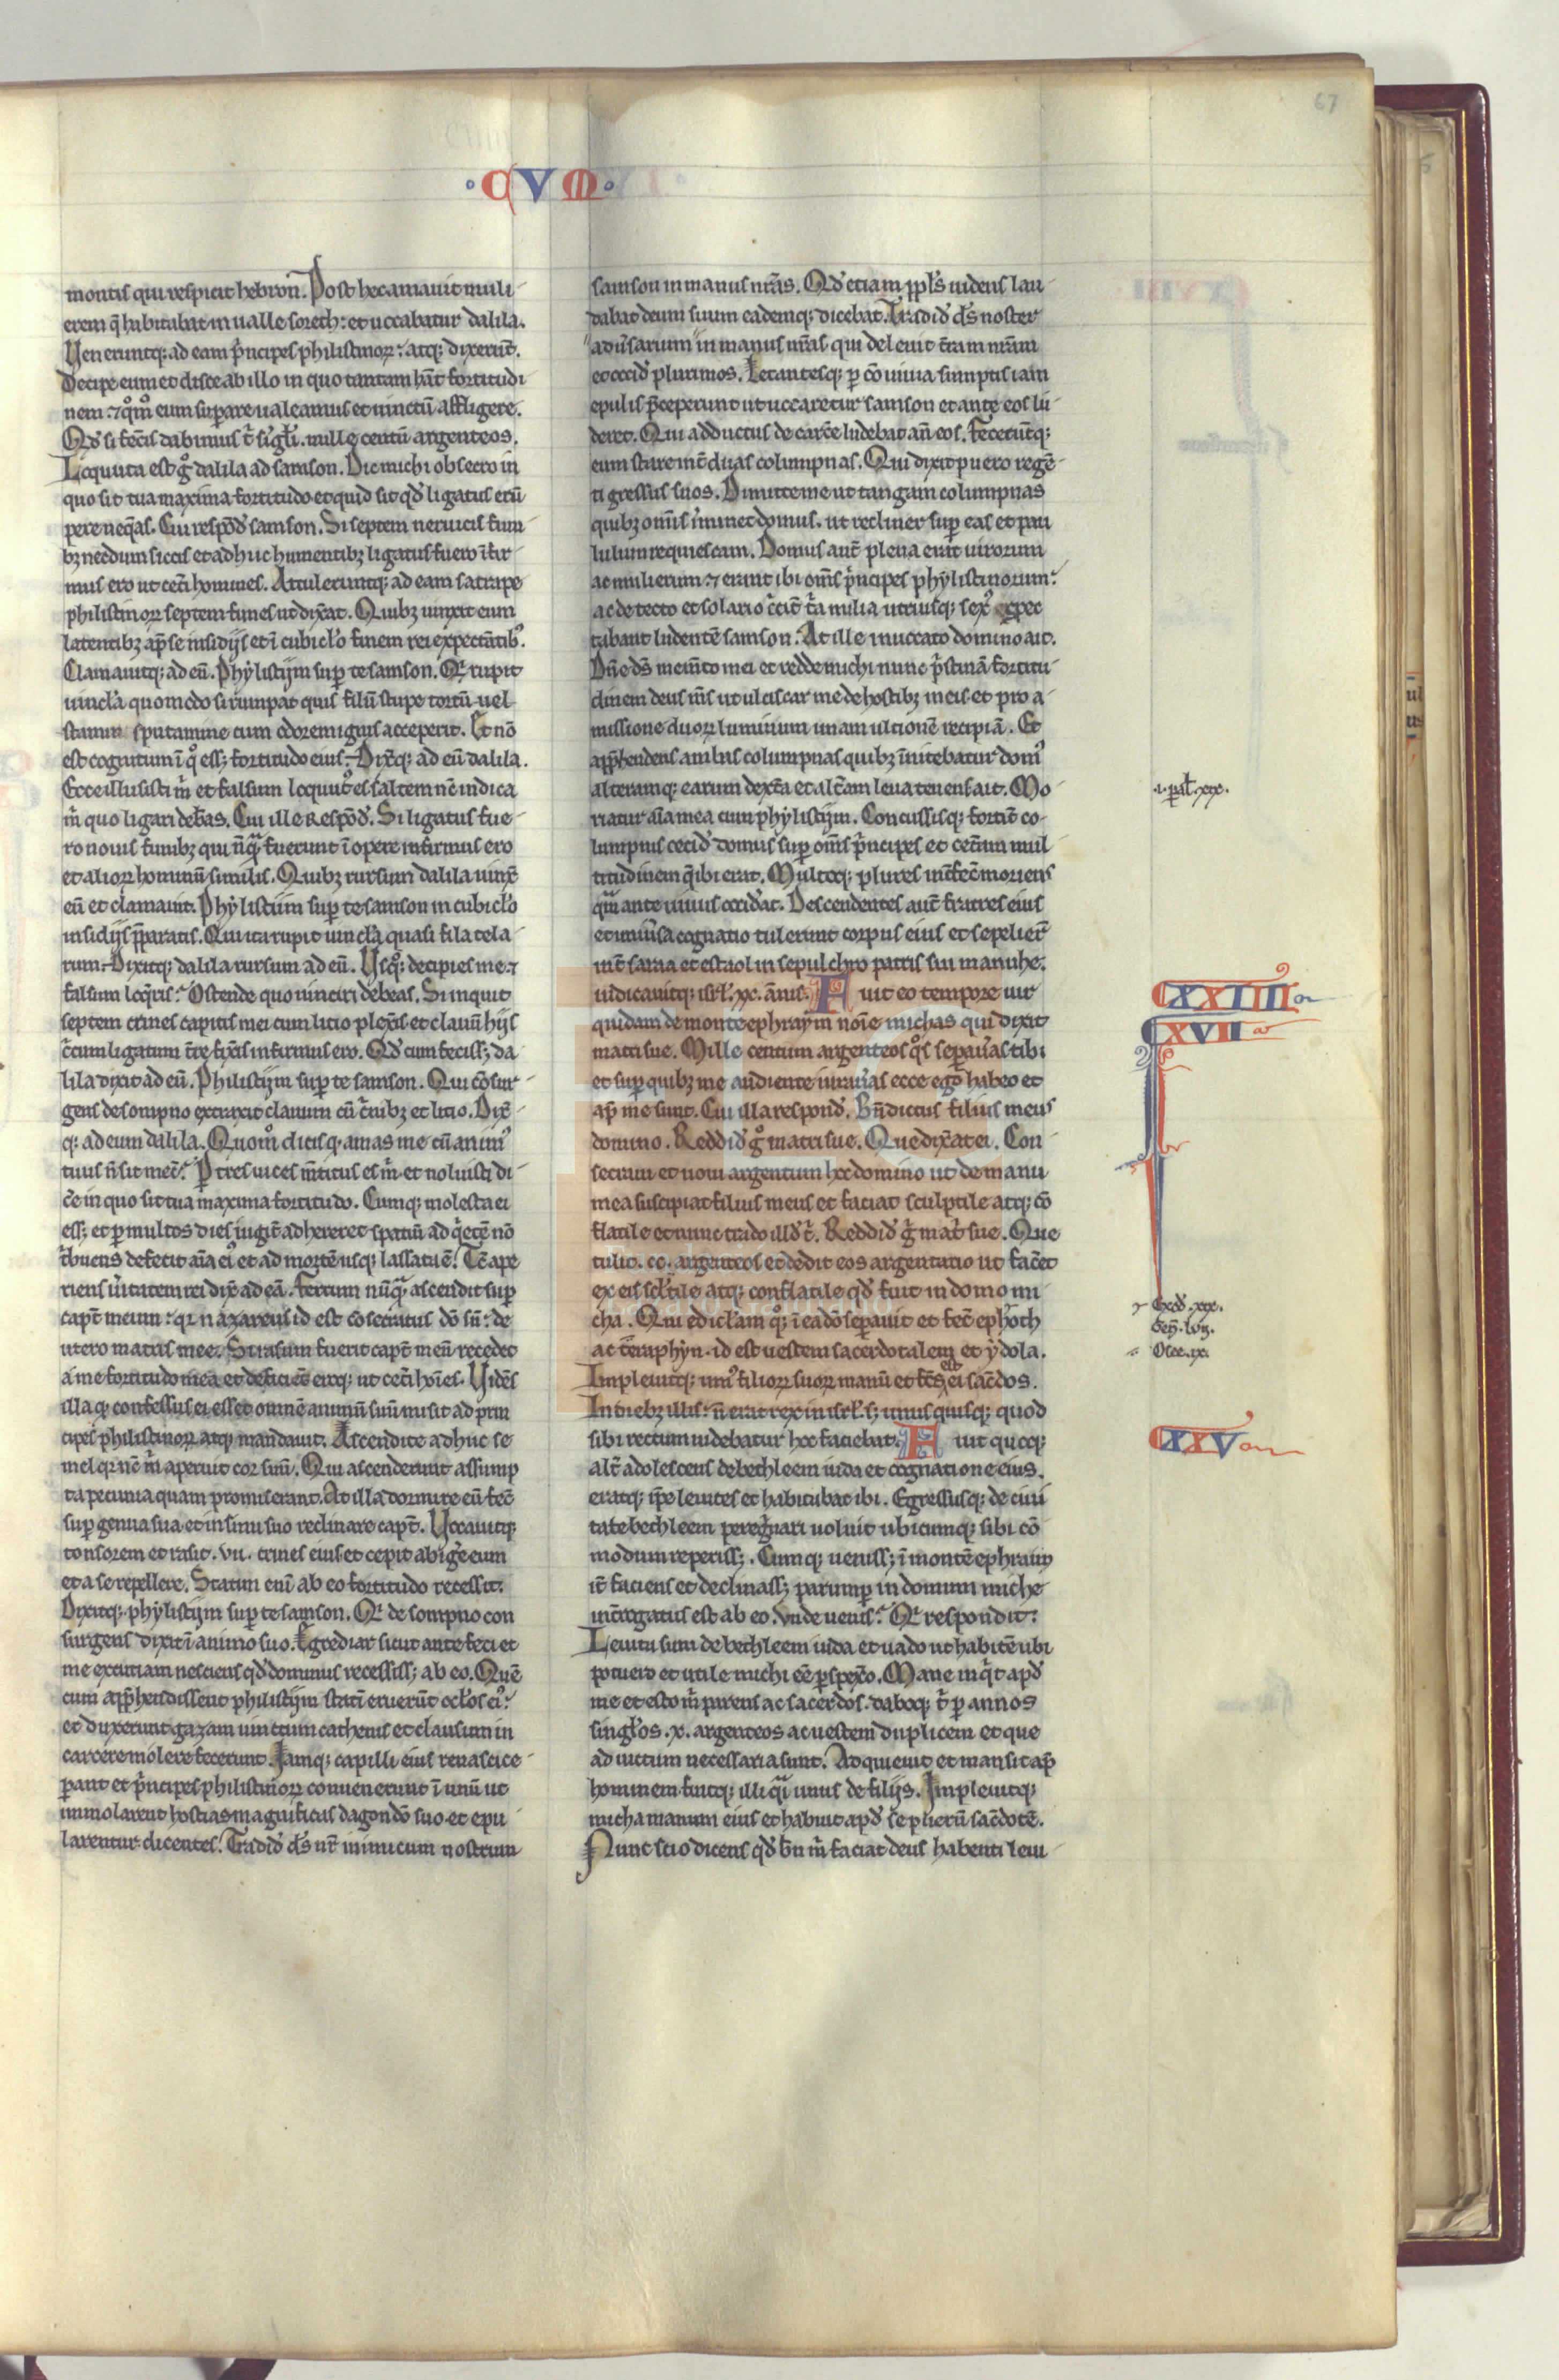 67
·CVM·
montis qui respicit hebron. Post hec amauit muli
erem q̄ habitabat in ualle sorech: et uocabatur dalila.
Ueneruntq; ad eam p̄ncipes philistinoꝝ: atq; dixerūt.
Decipe eum et disce ab illo in quo tantam hāt fortitudi
nem ⁊ qͦm̄ eum suꝑare ualeamus et uinctū affligere.
Qd̄ si fec̄is dabimus t̄ sīgl̄i. mille centū argenteos.
Locquuta est gͦ dalila ad samson. Dic michi obsecro in
quo sit tua maxima fortitudo et quid sit qd̄ ligatus erū
pere neq̄as. Cui respōd̄ samson. Si septem neruicis funi
bꝫ necdum siccis et adhuc humentibꝫ ligatus fuero īfir
mus ero ut cet̄i homines. Attuleruntq; ad eam satrape
philistinoꝝ septem funes ut dix̄at. Quibꝫ uinxit eum
latentibꝫ ap̄ se insidijs et ī cubicl̄o finem rei expectātibꝰ.
Clamauitq; ad eū. Phylistijm suꝑ te samson. Qͥ rupit
uincl̄a quomodo si rumpat quis filū stupe tortū uel
stamin sputamine cum odorem ignis acceperit. Et nō
est cognitum ī qͦ essꝫ fortitudo eius. Dix̄q; ad eū dalila.
Ecce illusisti m̄ et falsum locquutꝰ es saltem nc̄ indica
m̄ quo ligari deb̄as. Cui ille respōd̄. Si ligatus fue
ro nouis funibꝫ qui nūqͣ fuerunt ī opere infirmus ero
et alioꝝ hominū similis. Quibꝫ rursum dalila uinx̄
eū et clamauit. Phylistiim suꝑ te samson in cubicl̄o
insidijs p̄paratis. Qui ita rupit uincl̄a quasi fila tela
rum. Dixitq; dalila rursum ad eū. Usq̊; decipies me ⁊
falsum loq̄ris: Ostende quo uinciri debeas. Si inquit
septem crines capitis mei cum licio plex̄is et clauū hijs
c̄cumligatum t̄re fix̄is infirmus ero. Qd̄ cum fecissꝫ da
lila dixit ad eū. Philistijm suꝑ te samson. Qui cōsur
gens de sompno extraxit clauum cū c̄nibꝫ et licio. Dix̄
q; ad eum dalila. Quom̊ dicis q. amas me cū animꝰ
tuus n̄ sit mec̄: Ꝑ tres uices m̄titus es m̄. et noluisti di
c̄e in quo sit tua maxima fortitudo. Cumq; molesta ei
essꝫ et ꝑ multos dies iugit̄ adhereret spatiū ad q̄etē nō
t̄buens defecit aīa eiꝰ et ad mortē usq; lassatu ē. Tc̄ ape
riens ūitatem rei dix̄ ad eā. Ferrum nūqͣ ascendit suꝑ
capt̄ meum: qͥ naxareus id est cōsecratus dō sū: de
utero matris mee. Si rasum fuerit capt̄ meū recedet
a me fortitudo mea et deficiēs eroq; ut cet̄i hoīes. Uidēs
illa q. confessus ei esset omnē animū suū misit ad prin
cipes philistinoꝝ atq; mandauit. Ascendite adhuc se
mel qͥ nc̄ m̄ aperuit cor suū. Qui ascenderunt assump
ta pecunia quam promiserant. At illa dormire eū fec̄
suꝑ genua sua et in sinu suo reclinare capt̄. Uocauitq;
tonsorem et rasit. vii. crines eius et cepit abiḡe eum
et a se repellere. Statim enī ab eo fortitudo recessit.
Dixitq; phylistijm suꝑ te samson. Qͥ de sompno con
surgens dixit ī animo suo. Egrediar sicut ante feci et
me excutiam nesciens qd̄ dominus recessissꝫ ab eo. Quē
cum app̄hendissent philistijm statī eruerūt ocl̄os eiꝰ:
et duxerunt gazam uinctum cathenis et clausum in
carcere molere fecerunt. Jamq; capilli eius renasci ce
ꝑant et p̄ncipes philistinoꝝ conuenerunt ī unū ut
immolarent hostias magnificas dagon dō suo et epu
larentur dicentes. Tradid̄ ds̄ nr̄ inimicum nostrum
samson in manus nr̄as. Qd̄ etiam ppl̄s uidens lau
dabat deum suum eademq; dicebat. Tradid̄ ds̄ noster
adūsarium in manus nr̄as qui deleuit t̄ram nr̄am
et occid̄ plurimos. Letantesq; ꝑ cōuiuia sumptis iam
epulis p̄ceperunt ut uocaretur samson et ante eos lu
deret. Qui adductus de carc̄e ludebat an̄ eos. Fecerūtq;
eum stare int̄ duas columpnas. Qui dixit puero regē
ti gressus suos. Dimitte me ut tangam columpnas
quibꝫ omīs īminet domus. ut recliner suꝑ eas et pau
lulum requiescam. Domus aut̄ plena erat uirorum
ac mulierum ⁊ erant ibi om̄s p̄ncipes phylistinorum:
ac de tecto et solario c̄cit̄ t̄a milia utriusq; sexꝰ expec
tabant ludentē samson. At ille inuocato domino ait.
Dn̄e ds̄ memēto mei et redde michi nunc p̄stinā fortitu
dinem deus m̄s ut ulciscar me de hostibꝫ meis et pro a
missione duoꝝ luminum unam ultionē recipiā. Et
app̄hendens ambas columpnas quibꝫ īnitebatur domꝰ
alteramq; earum dext̄a et alt̄am leua tenens ait. Mo
riatur aīa mea cum phylistijm. Concussisq; fortit̄ co
lumpnis cecid̄ domus suꝑ om̄s p̄ncipes et cet̄am mul
titudinem q̄ ibi erat. Multoq; plures int̄fec̄ moriens
qͣm ante uiuus occid̄at. Descendentes aut̄ fratres eius
et uniūsa cognatio tulerunt corpus eius et sepelier̄
int̄ saraa et estaol in sepulchro patris sui manuhe.
iudicauitq; isrl̄. xx. annis. Fuit eo tempore uir
quidam de monte ephraym noīe michas qui dixit
matri sue. Mille centum argenteos qͦs separaūas tibi
et suꝑ quibꝫ me audiente iuraūas ecce ego habeo et
ap̄ me sunt. Cui illa respond̄. Bn̄dictus filius meus
domino. Reddid̄ gͦ matri sue. Que dix̄at ei. Con
secraui et uoui argentum hoc domino ut de manu
mea suscipiat filius meus et faciat sculptile atq; cō
flatile et nunc trado illd̄ t̄. Reddid̄ gͦ mat̄i sue. Que
tulit. cc. argenteos et dedit eos argentario ut fac̄et
ex eis scl̄tile atq; conflatile qd̄ fuit in domo mi
cha. Qui ediclam qͦ; ī ea dō separauit et fec̄ ephoth
ac theraphyn. id est uestem sacerdotalem et ydola.
Impleuitq; uniꝰ filioꝝ suoꝝ manū et fc̄s est ei sac̄dos.
In diebꝫ illis: n̄ erat rex in isrl̄. sꝫ unusquisq; quod
sibi rectum uidebatur hoc faciebat. Fuit quoq;
alt̄ adolescens de bethleem iuda et cognatione eius.
eratq; ip̄e leuites et habitabat ibi. Egressusq; de ciui
tate bethleem peregͥnari uoluit ubicumq; sibi cō
modum reperissꝫ. Cumq; uenissꝫ ī montē ephraim
it̄ faciens et declinassꝫ parumꝑ in domum miche
int̄rogatus est ab eo. vnde uenis: Qͥ respondit:
Leuita sum de bethleem iuda et uado ut habitē ubi
potuero et utile michi eē ꝑspex̄o. Mane inqͥt apd̄
me et esto m̄ parens ac sacerdos. daboq; t̄ ꝑ annos
singl̄os. x. argenteos ac uestem duplicem et que
ad uictum necessaria sunt. Adquieuit et mansit ap̄
hominem fuitq; illi qͣi unus de filijs. Impleuitq;
micha manum eius et habuit apd̄ se puerū sac̄dotē.
Nunc scio dicens qd̄ bn̄ m̄ faciat deus habenti leui
.i. pal. xxx.
CXXIIII
CXVII
Exod̄. xxx.
Osee. ix.
CXXV